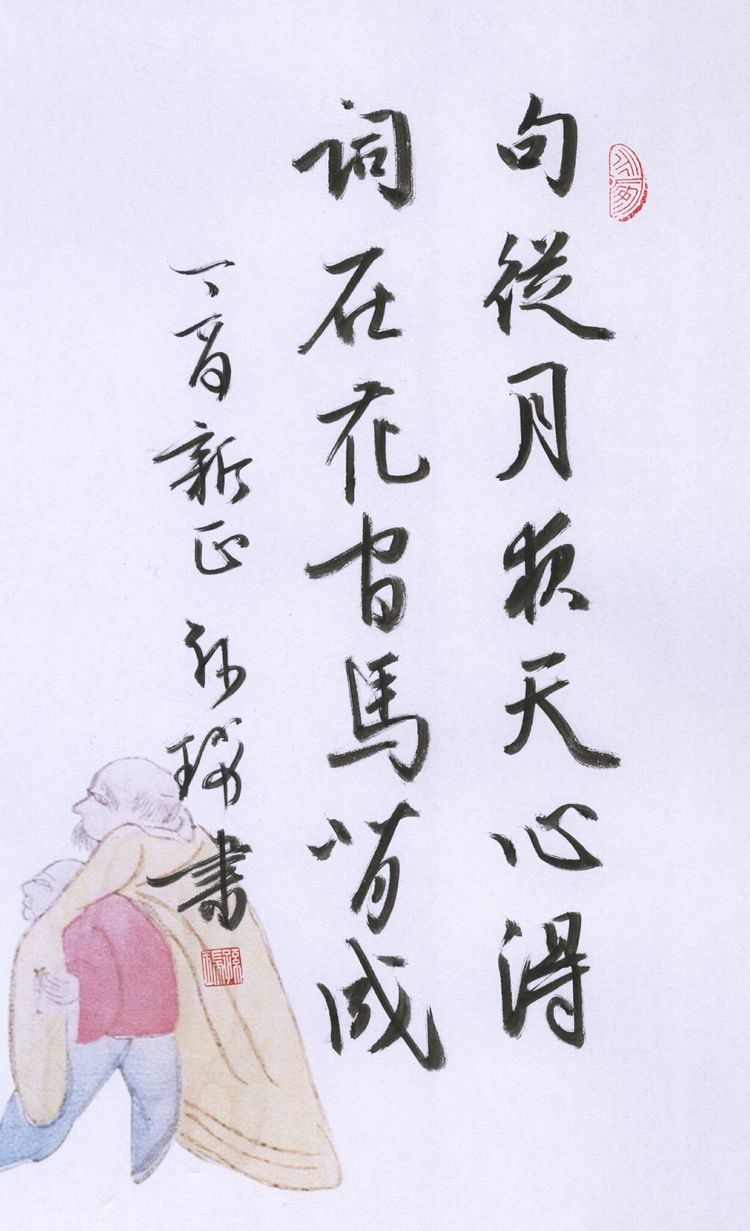 句從月夜天心得
詞在花宮馬背成
丁酉新正 永瑞書